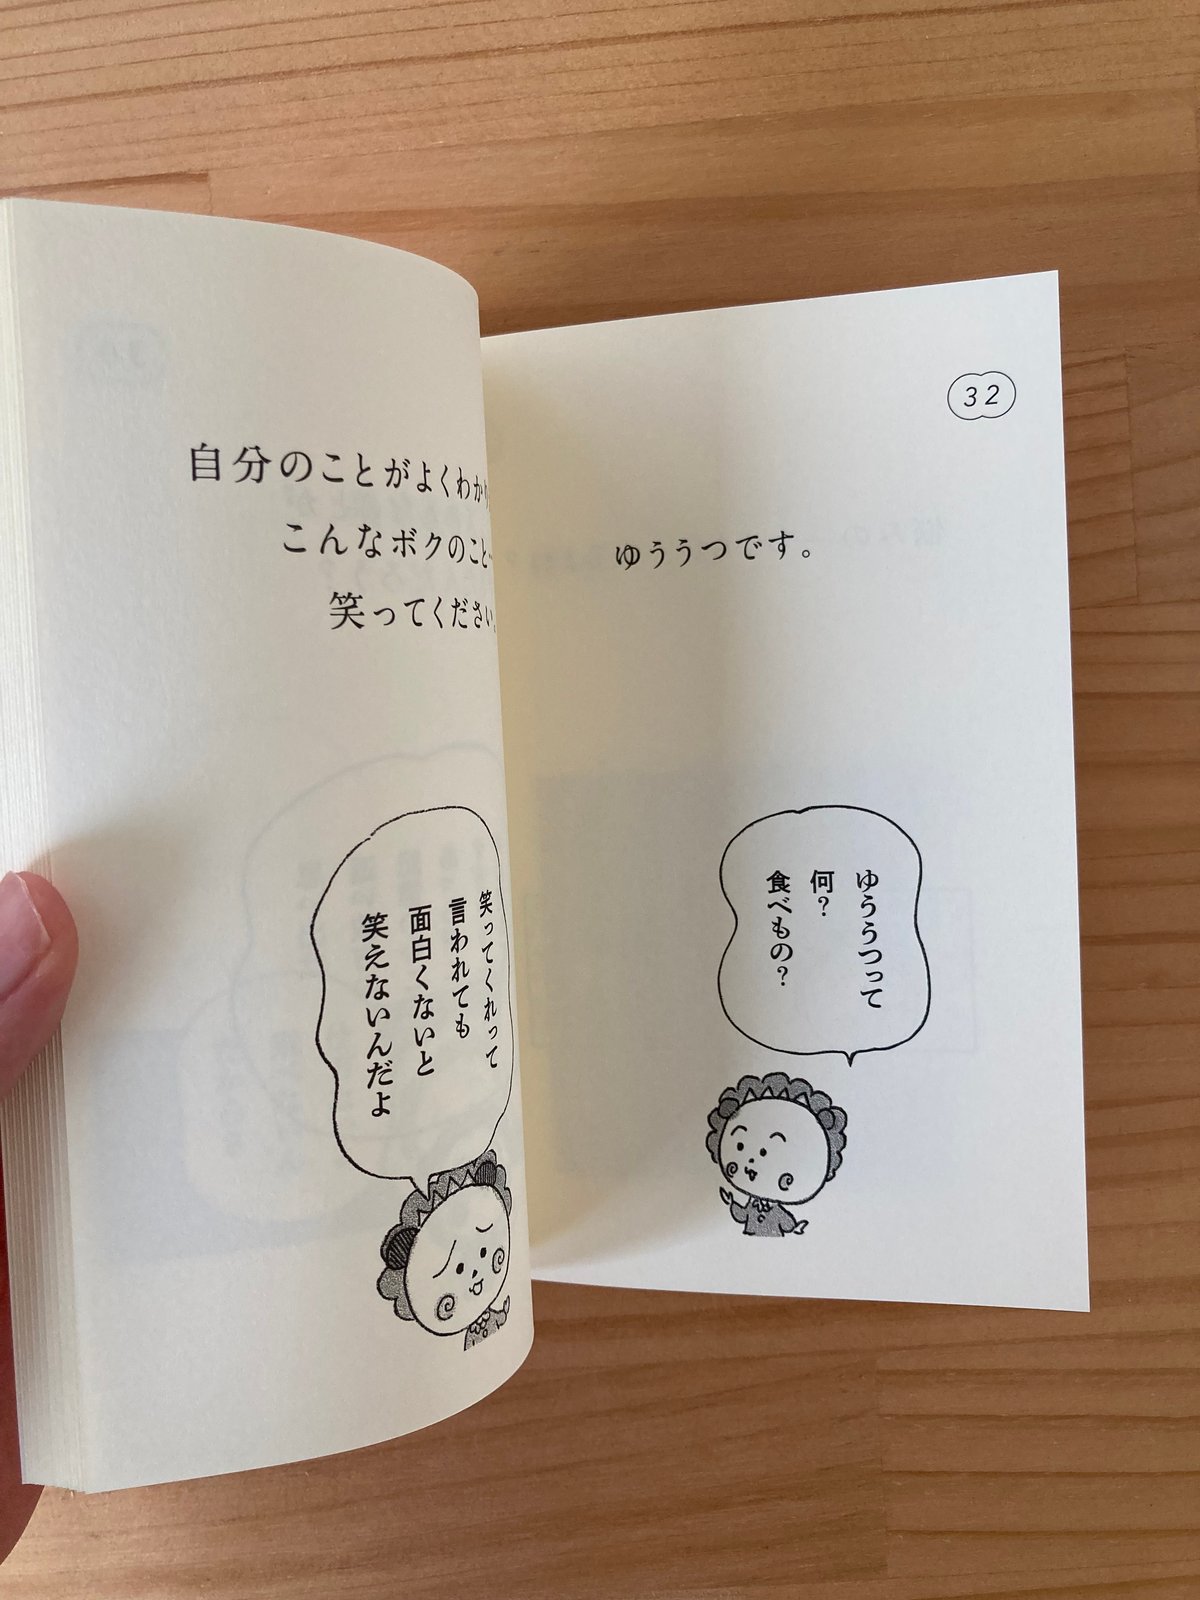 自分のことがよくわか
こんなボクのこと
笑ってください。
笑ってくれって
言われても
面白くないと
笑えないんだよ
32
ゆううつです。
ゆううつって
何?
食べもの?